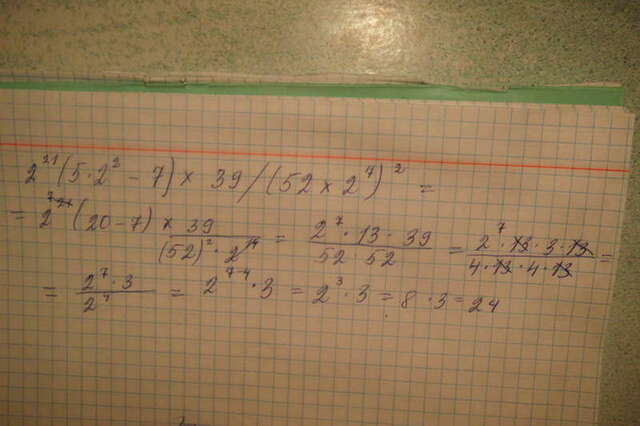 2²¹(5·2² - 7) × 39/(52 × 2⁷)² =
= 2⁷ ²¹ (20-7) × 39 / (52)² · 2¹⁴ = 2⁷ · 13 · 39 / 52 · 52 = 2⁷ · 13 · 3 · 13 / 4 · 13 · 4 · 13 =
= 2⁷ · 3 / 2⁴ = 2⁷⁻⁴ · 3 = 2³ · 3 = 8 · 3 = 24